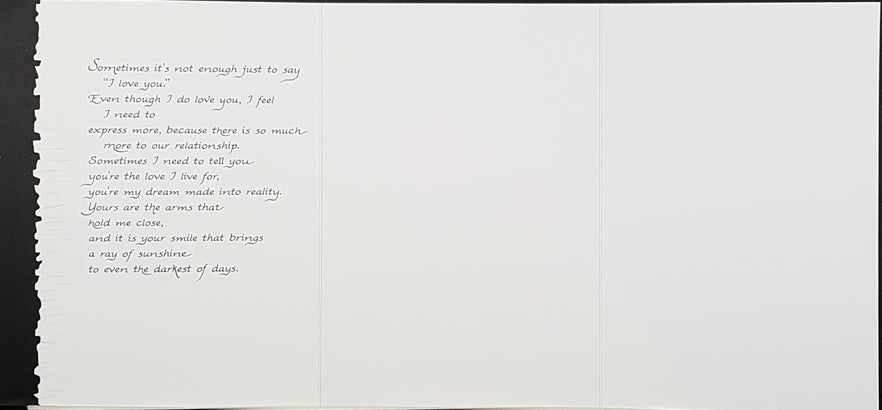 Sometimes it's not enough just to say
"I love you."
Even though I do love you, I feel
I need to
express more, because there is so much
more to our relationship.
Sometimes I need to tell you
you're the love I live for,
you're my dream made into reality.
Yours are the arms that
hold me close,
and it is your smile that brings
a ray of sunshine
to even the darkest of days.